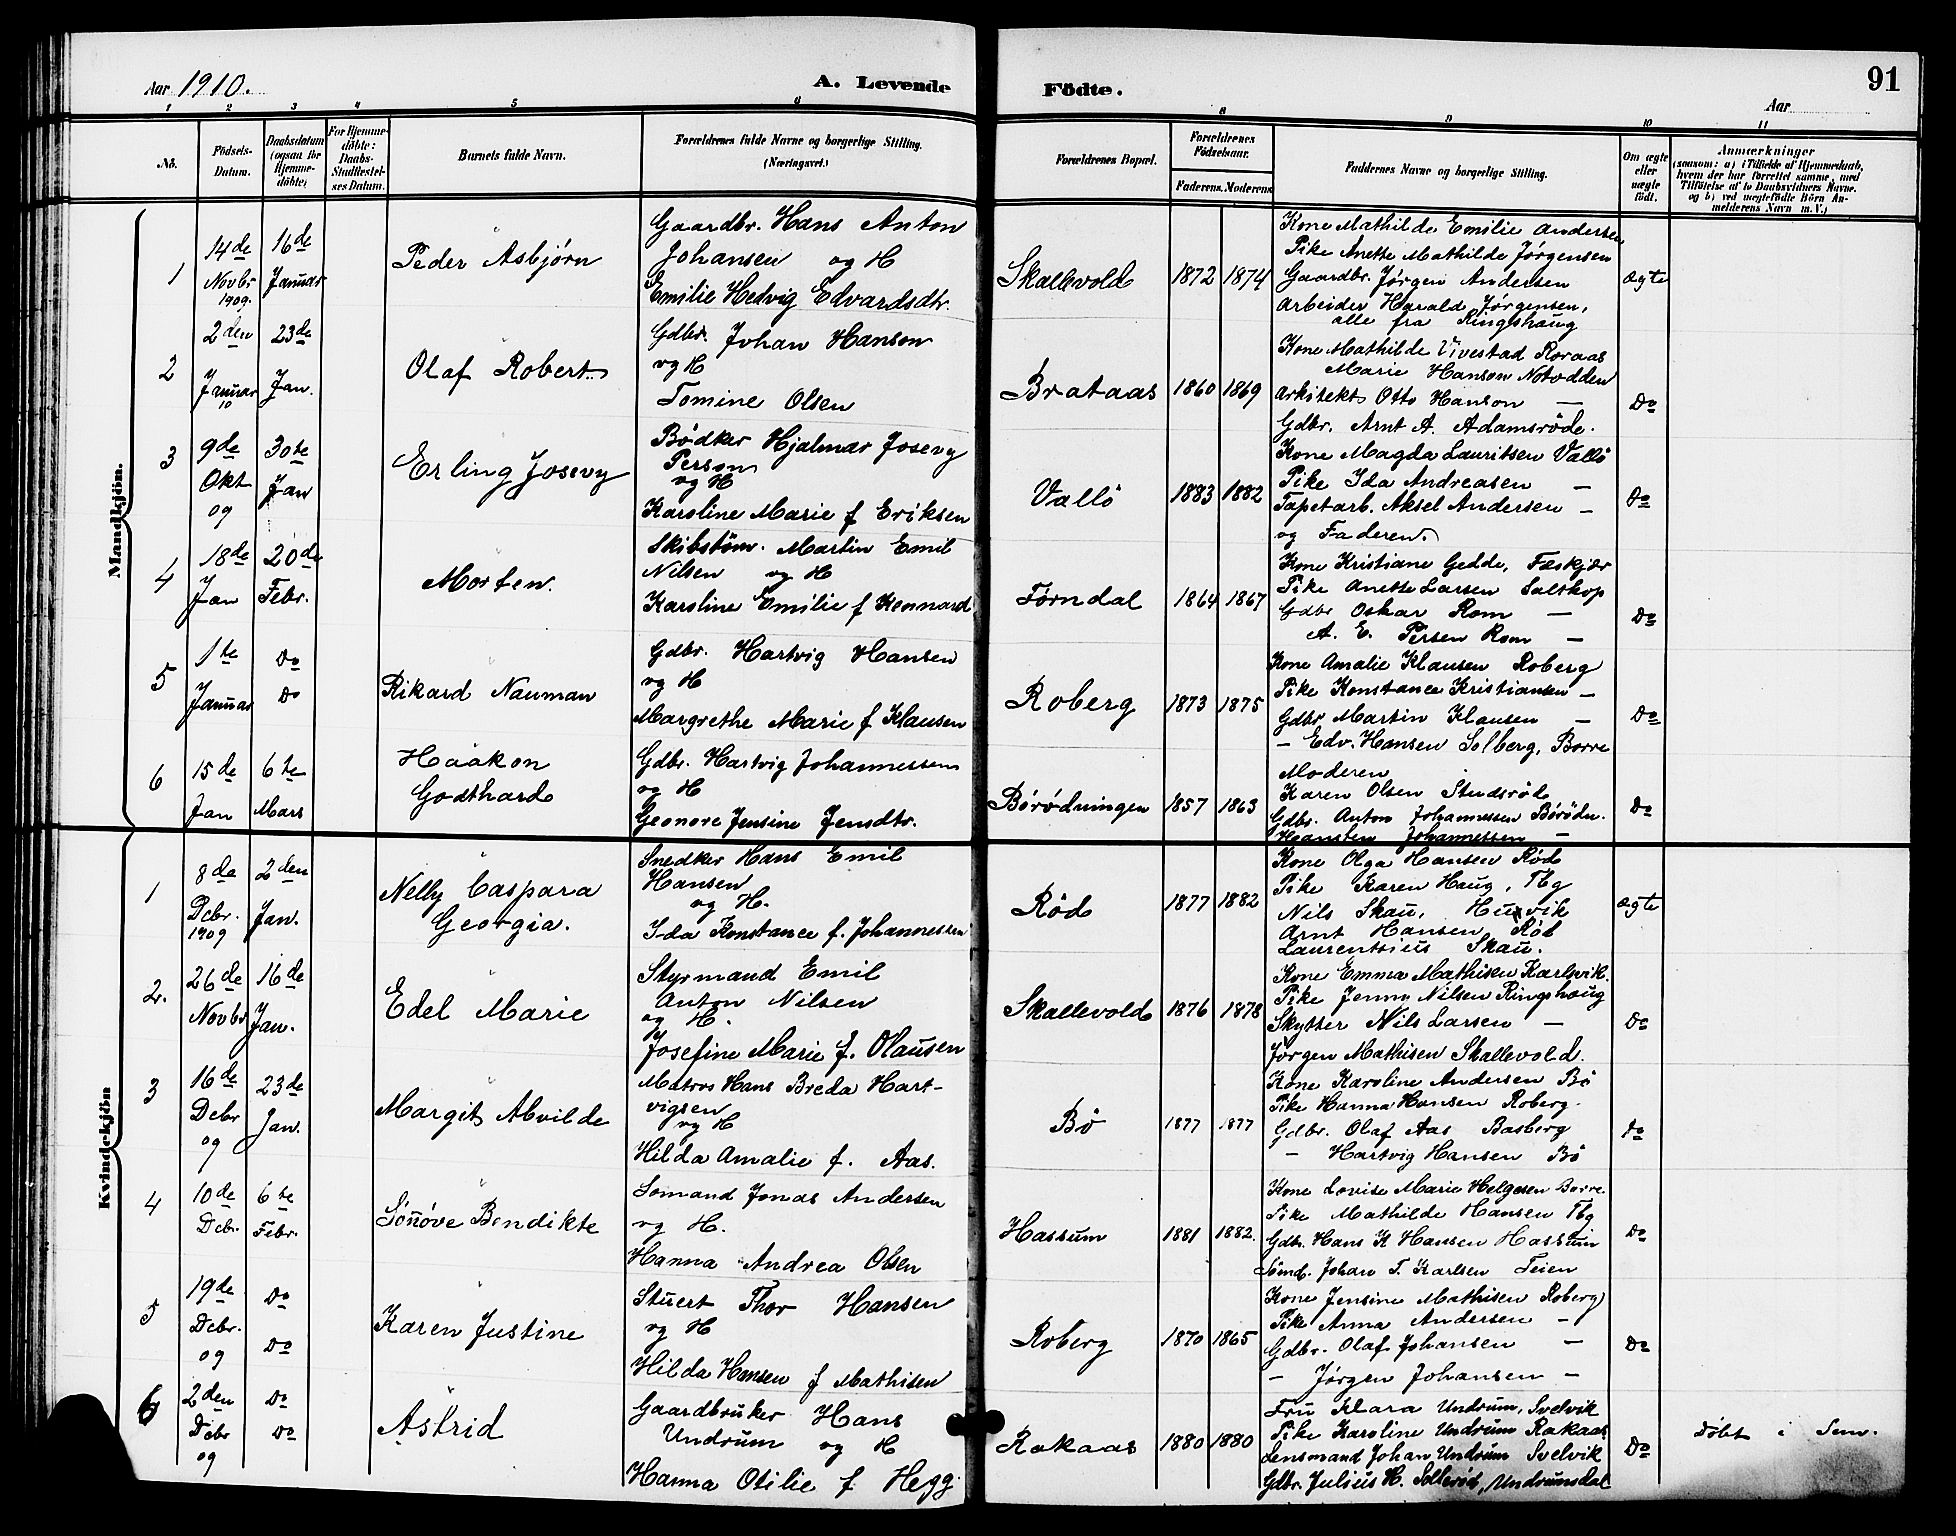 Aar 1910.
A. Levende
Födte.
91
Aar
1 2 3 4 5 6 8 9 10 11
No.
Födsels-
Datum.
Daabsdatum
(ogsaa for
Hjemme-
döbte)
For Hjemme-
döbte:
Daabs-
Stadfæstel-
ses Datum.
Barnets fulde Navn.
Forældrenes fulde Navne og borgerlige Stilling.
(Næringsvei.)
Forældrenes Bopæl.
Forældrenes
Födselsaar.
Faderens. Moderens.
Faddernes Navne og borgerlige Stilling.
Om ægte
eller
uægte
födt.
Anmærkninger
(saasom: a) i Tilfælde af Hjemmedaab,
hvem der har forrettet samme, med
Tilföielse af to Daabsvidners Navne.
og b) ved uægtefödte Börn An-
melderens Navn m. V.)
Mandkjön.
1
14de
Novbr
1909.
16de
Januar
Peder Asbjørn
Gaardbr. Hans Anton
Johansen og H
Emilie Hedvig Edvardsdtr.
Skallevold
1872 1874
Kone Mathilde Emilie Andersen
Pike Anette Mathilde Jørgensen
Gaardbr. Jørgen Andersen
Arbeider Harald Jørgensen,
alle fra Ringshaug
Ægte
2
2den
Januar
10
23de
Jan.
Olaf Robert
Gdbr. Johan Hanson
og H
Tomine Olsen
Brataas
1860 1869
Kone Mathilde Vivestad Roraas
Marie Hanson Notodden
Arkitekt Otto Hanson —
Gdbr. Arnt A. Adamsröde.
Do
3
9de
Okt
09
30te
Jan
Erling Josevy
Bødker Hjalmar Josevy
Person
og H
Karoline Marie f Eriksen
Vallö
1883 1882
Kone Magda Lauritsen Vallö
Pike Ida Andreasen —
Tapetarb. Aksel Andersen —
og Faderen.
Do
4
18de
Jan
20de
Febr.
Morten.
Skibstøm. Martin Emil
Nilsen og H
Karoline Emilie f Kennard
Førndal
1864 1867
Kone Kristiane Gedde, Fæskjær
Pike Anette Larsen Saltkop
Gdbr Oskar Rom —
A. E. Persen Rom —
Do
5
1te
Januar
Do
Do
Rikard Nauman
Gdbr. Hartvig Hansen
og H
Margrethe Marie f Klausen
Roberg
1873 1875
Kone Amalie Klausen Roberg
Pike Konstance Kristiansen —
Gdbr Martin Klausen —
— Edv. Hansen Solberg, Borre
Do
6
15de
Jan
6te
Mars
Haakon
Godthard
Gdbr. Hartvig Johannessen
og H
Geonore Jensine Jensdtr.
Börödningen
1857 1863
Moderen
Karen Olsen Studsröd
Gdbr. Anton Johannessen Börödn.
Hansten Johannessen —
Do
Kvindekjön
1
8de
Debr.
1909
2den
Jan.
Nelly Caspara
Georgia.
Snedker Hans Emil
Hansen
og H.
Ida Konstance f. Johannessen
Röd
1877 1882
Kone Olga Hansen Röd
Pike Karen Haug, Tbg
Nils Skau, Husvik
Arnt Hansen Röd
Laurentsius Skau.
Ægte
2.
26de
Novbr
16de
Jan.
Edel Marie
Styrmand Emil
Anton Nilsen
og H.
Josefine Marie f. Olausen
Skallevold
1876 1878
Kone Emma Mathisen Karlsvik.
Pike Jenny Nilsen Ringshaug
Skytter Nils Larsen —
Jørgen Mathisen Skallevold.
Do
3
16de
Debr
09
23de
Jan.
Margit Alvilde
Matros Hans Breda Hart-
vigsen
og H
Hilda Amalie f. Aas.
Bö
1877 1877
Kone Karoline Andersen Bö
Pike Hanna Hansen Roberg.
Gdbr. Olaf Aas Basberg
— Hartvig Hansen Bö
Do
4
10de
Debr.
6te
Febr.
Sönöve Bendikte
Sømand Jonas Andersen
og H.
Hanna Andrea Olsen
Hassum
1881 1882.
Kone Lovise Marie Helgesen Borre.
Pike Mathilde Hansen Tbg
Gdbr. Hans K Hansen Hassum
Sömd. Johan T. Karlsen Teien
Do
5
19de
Debr.
09
Do
Do
Karen Justine
Stuert Thor Hansen
og H
Hilda Hansen f Mathisen
Roberg
1870 1865
Kone Jensine Mathisen Roberg
Pike Anna Andersen —
Gdbr. Olaf Johansen —
— Jørgen Johansen —
Do
6
2den
Debr
09
Do
Do
Astrid
Gaardbruker Hans
Undrum og H
Hanna Otilie f Hegg.
Rakaas
1880 1880
Fru Klara Undrum, Svelvik
Pike Karoline Undrum Rakaas
Lensmand Johan Undrum Svelvik
Gdbr. Julius H. Solleröd, Undrumsdal
Do
Döbt i Sem.